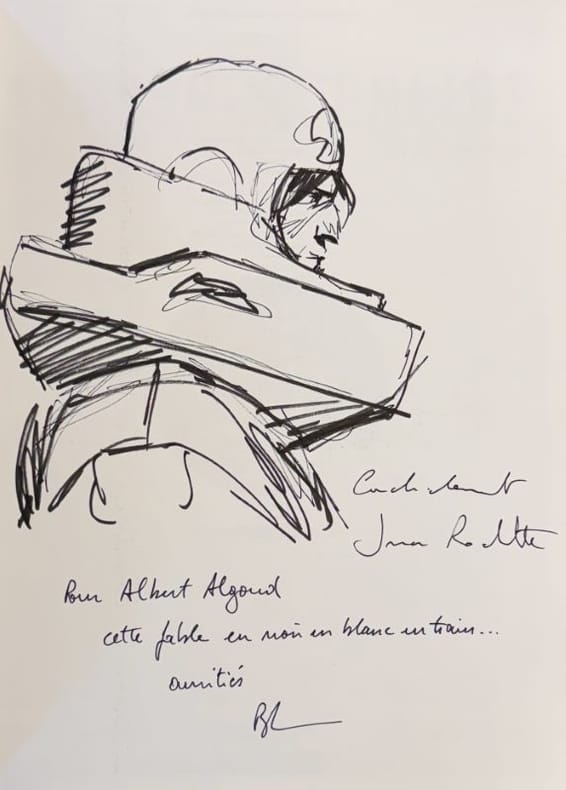 Cordialement
Jean-Marc Rochette
Pour Albert Algoud
cette fable en noir en blanc en train...
amitiés